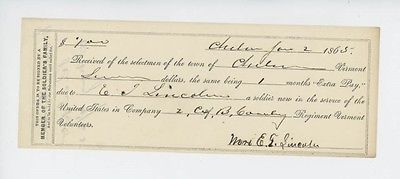 THIS COUPON IS TO BE SIGNED BY A
MEMBER OF THE SOLDIER'S FAMILY,
$ 7.00 Chelsea Jan 2 1865
Received of the selectmen of the town of Chelsea Vermont
Seven dollars, the same being 1 months "Extra Pay,"
due to E. T. Lincoln a soldier now in the service of the
United States in Company Regiment Vermont
Volunteers.
Mrs E. T. Lincoln